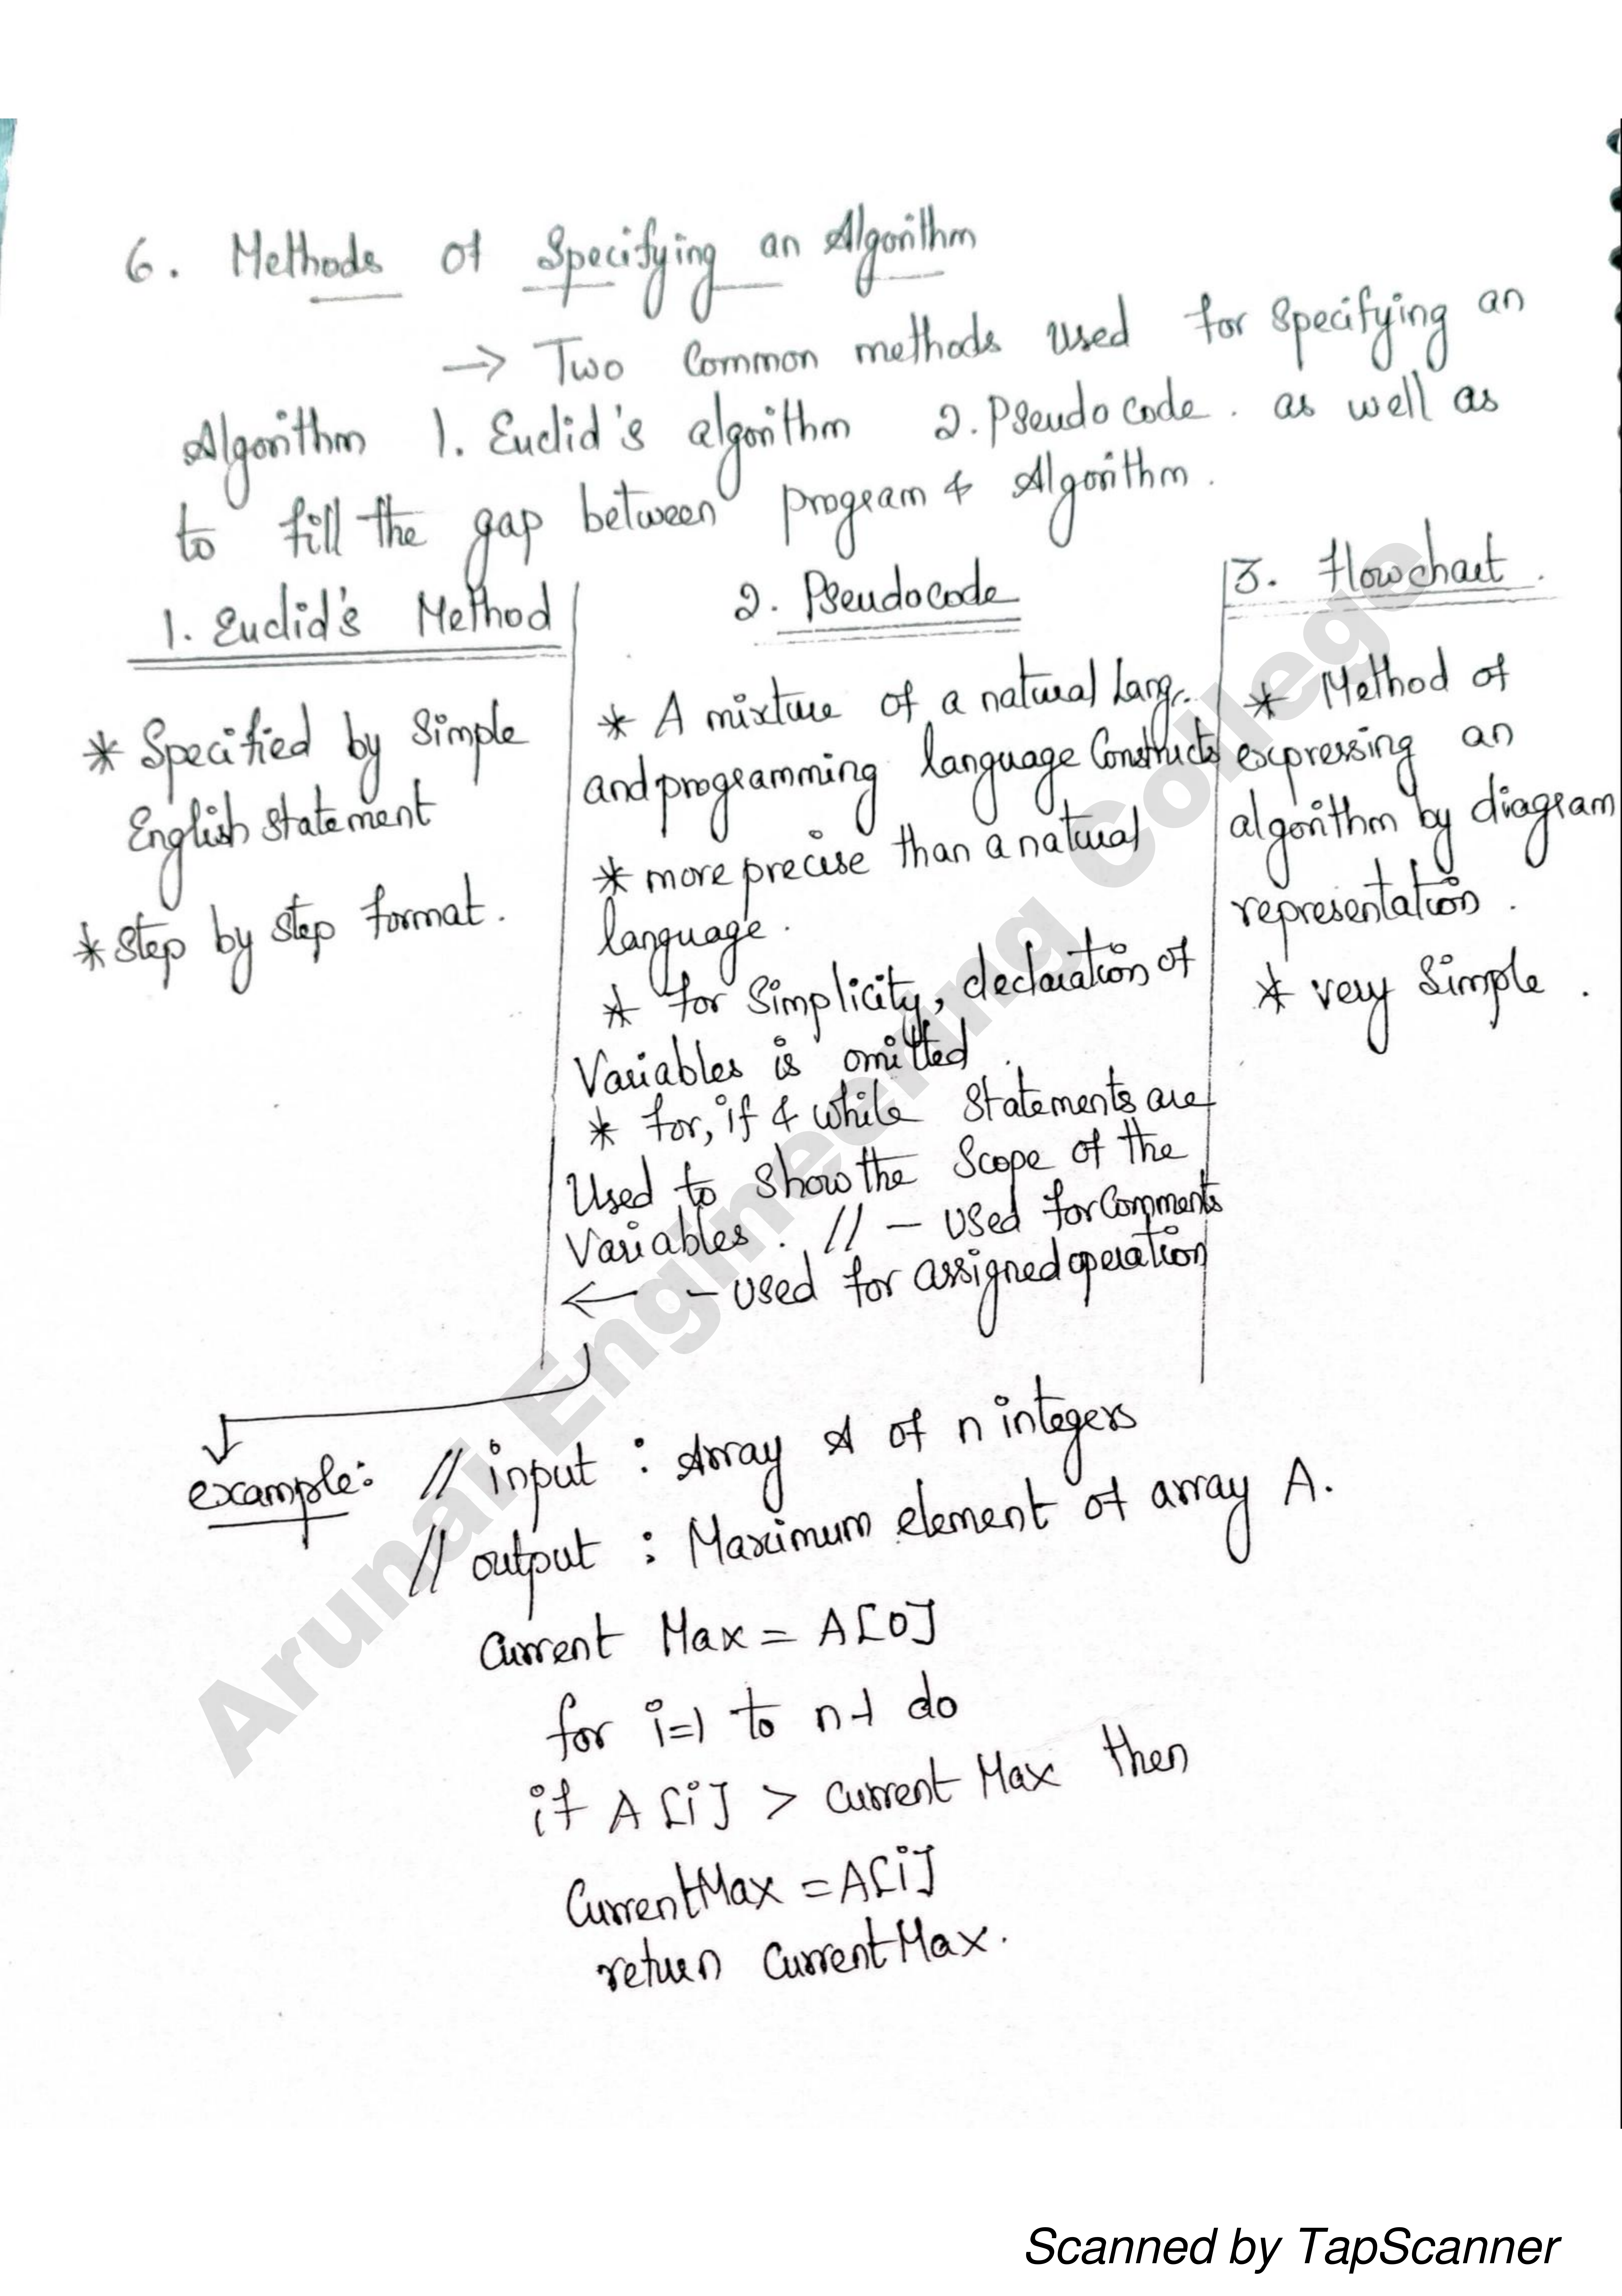 6. Methods of Specifying an Algorithm
→ Two Common methods used for specifying an
Algorithm 1. Euclid's algorithm 2. Pseudocode. as well as
to fill the gap between program & Algorithm.
1. Euclid's Method
* Specified by Simple
English statement
* Step by step format.
2. Pseudocode
* A mixture of a natural Lang.
and programming language Constructs
* more precise than a natural
language.
* for Simplicity, declaration of
Variables is omitted.
* for, if & while Statements are
Used to show the Scope of the
Variables. // – used for Comments
← – used for assigned operation
3. Flowchart.
* Method of
expressing an
algorithm by diagram
representation.
* very Simple.
example: // input : Array A of n integers
// output : Maximum element of array A.
Current Max = A[0]
for i=1 to n-1 do
if A[i] > Current Max then
CurrentMax = A[i]
return CurrentMax.
Arunai Engineering College
Scanned by TapScanner